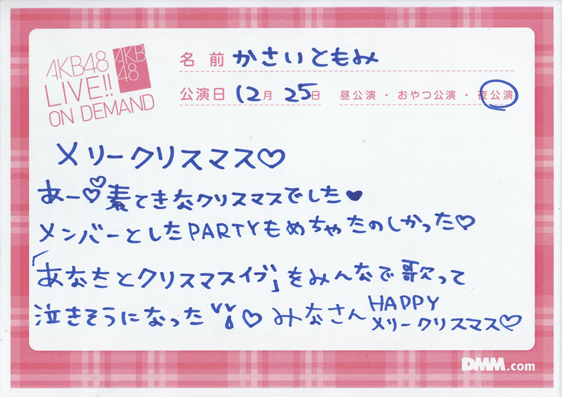 AKB48
LIVE!!
ON DEMAND
AKB
48
名前 かさいともみ
公演日 12月 25日 昼公演・おやつ公演・夜公演
メリークリスマス♡
あー♡素てきなクリスマスでした♥
メンバーとしたPARTYもめちゃたのしかった♡
「あなたとクリスマスイブ」をみんなで歌って
泣きそうになった♡みなさんHAPPY
メリークリスマス♡
DMM.com